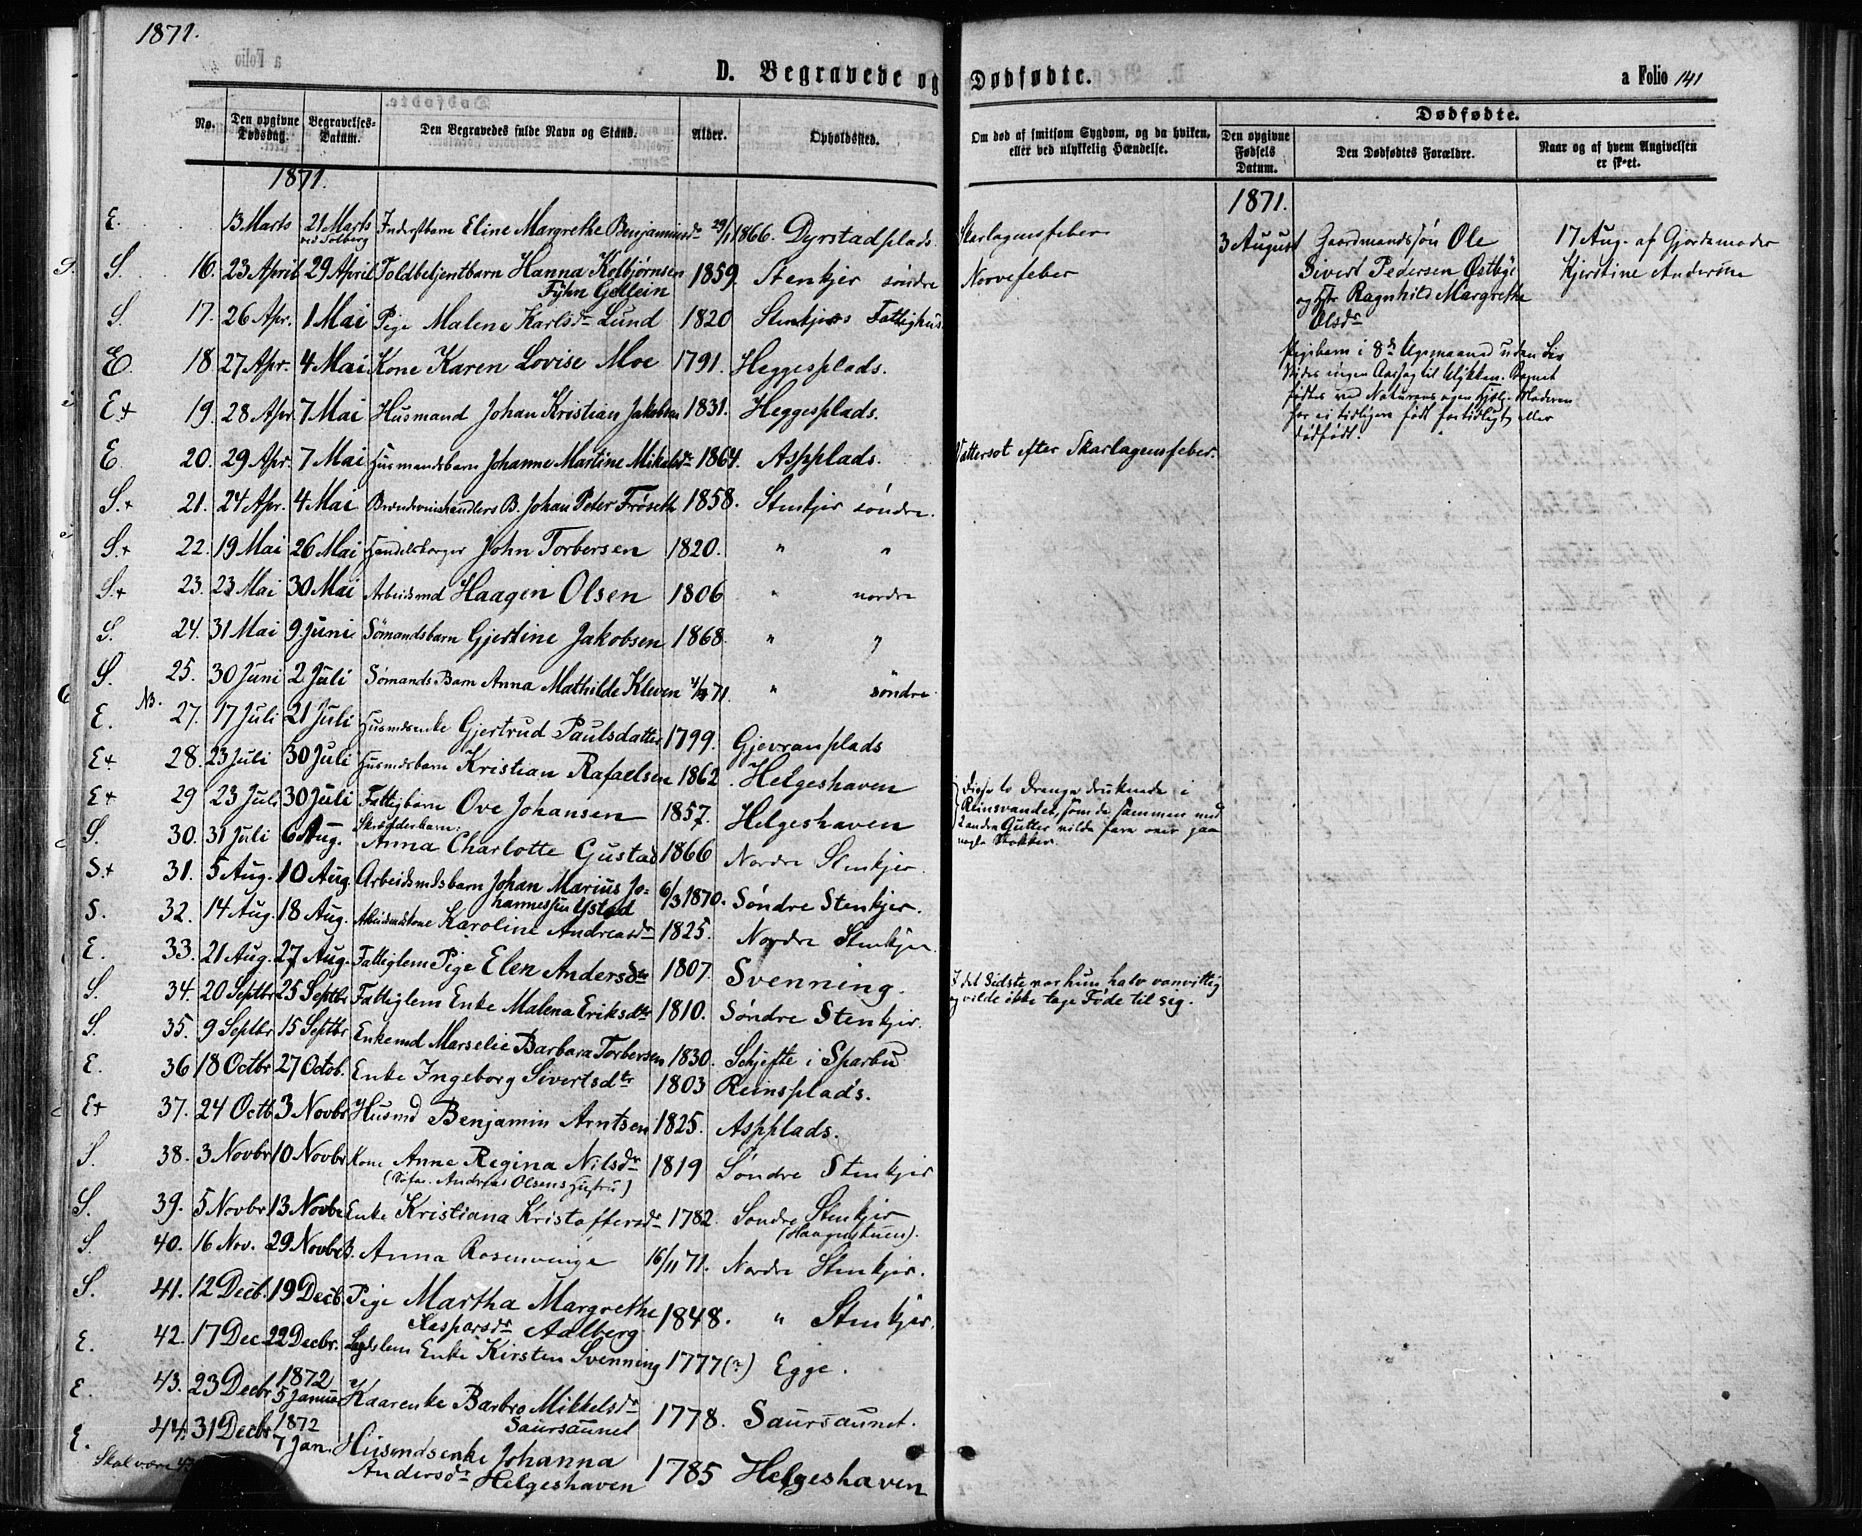 1871.
D. Begravede og Dødfødte.
a Folio 141
No. Den opgivne Dødsdag. Begravelses-Datum. Den Begravedes fulde Navn og Stand. Alder. Opholdssted. Om død af smitsom Sygdom, og da hvilken, eller ved ulykkelig Hændelse.
Dødfødte.
Den opgivne Fødsels Datum. Den Dødfødtes Forældre. Naar og af hvem Angivelsen er skeet.
1871.
E. 13 Marts 21 Marts ved Solberg Inderstbarn Eline Margrethe Benjaminsdr 29/11 1866. Dyrstadplads. Skarlagensfeber
S. 16. 23 April 29 April Toldbetjentbarn Hanna Kolbjørnsen 1859. Stenkjer søndre Nervefeber
Fyhn Gellein
S. 17. 26 Apr. 1 Mai Pige Malene Karlsdr Lund 1820 Stenkjers Fattighus
E. 18. 27 Apr. 4 Mai Kone Karen Lovise Moe 1791. Heggesplads.
E+ 19. 28 Apr. 7 Mai Husmand Johan Kristian Jakobsen 1831. Heggesplads.
E 20. 29 Apr. 7 Mai Husmandsbarn Johanne Martine Mikalsdr 1864. Aspplads. Vattersot efter Skarlagensfeber.
S.+ 21. 24 Apr. 4 Mai Brændevinshandlers B. Johan Peter Frøseth 1858. Stenkjer søndre.
S.+ 22. 19 Mai 26 Mai Handelsborger John Torbersen 1820. " "
S.+ 23. 23 Mai 30 Mai Arbeidsmd Haagen Olsen 1806 " nordre
S. 24. 31 Mai 9 Juni Sømandsbarn Gjertine Jakobsen 1868. " "
S. 25. 30 Juni 2 Juli Sømands Barn Anna Mathilde Kleven 71. " søndre
NB.
E. 27. 17 Juli 21 Juli Husmdsenke Gjertrud Paulsdatter 1799. Gjevranplads
E+ 28. 23 Juli 30 Juli Husmdsbarn Kristian Rafaelsen 1862. Helgeshaven
E+ 29 23 Juli 30 Juli Fattigbarn Ove Johansen 1857. Helgeshaven
Disse to Drenge druknede i
Reinsvandet, som de sammen med
2 andre Gutter vilde fare over paa
nogle Stokker.
S. 30. 31 Juli 6 Aug. Skrædderbarn: Anna Charlotte Gustad 1866 Nordre Stenkjer.
S+ 31. 5 Aug. 10 Aug. Arbeidsmdsbarn Johan Marius Jo- 6/3 1870. Søndre Stenkjer.
hannessen Ystad
S. 32. 14 Aug. 18 Aug. Arbeidsmdskone Karoline Andreasdr 1825. Nordre Stenkjer
E. 33. 21 Aug. 27 Aug. Fattiglem Pige Elen Andersdtr 1807. Svenning. I det Sidste var hun halv vanvittig
og vilde ikke tage Føde til sig.
S. 34. 20 Septbr 25 Septbr Fattiglem Enke Malena Eriksdtr 1810. Søndre Stenkjer.
S. 35. 9 Septbr 15 Septbr Enkemd Marselie Barbara Torbersen 1830. Schjefte i Sparbu
E. 36 18 Octbr 27 Octob. Enke Ingeborg Sivertsdtr 1803 Reinsplads.
E+ 37. 24 Octb 3 Novbr Husmd Benjamin Arntsen 1825. Aspplads.
S. 38. 3 Novbr 10 Novbr Kone Anne Regina Nilsdr 1819 Søndre Stenkjer
Andreas Olsens Hustru)
S. 39. 5 Novbr 13 Novbr Enke Kristiana Kristoffersdr 1782. Søndre Stenkjer
(Haagenstuen).
S. 40. 16 Nov. 29 Novbr B. Anna Rosenvinge 16/11 71. Nordre Stenkjer.
S. 41. 12 Decb. 19 Decb. Pige Martha Margrethe 1848. " Stenkjer.
Kaspersdr Aalberg
E. 42. 17 Dec 22 Decbr. Lægdslem Enke Kirsten Svenning 1777(?) Egge.
E. 43. 23 Decbr 1872 5 Januar Kaarenke Barbro Mikkelsdr 1778. Saursaunet.
Saursaunet
E. 44. 31 Decbr 1872 7 Jan. Husmdsenke Johanna 1785 Helgeshaven
Andersdr Helgeshaven
Skal være 43
1871.
3 August Gaardmandssøn Ole
Sivert Pedersen Østbye
og Hstr Ragnhild Margrethe
Olsdr
17 Aug. af Gjordemoder
Kjerstine Andersine
Pigebarn i 8de Ugemaaned uden Liv
Vides ingen Aarsag til Ulykken. Barnet
fødtes ved Naturens egen Hjælp. Moderen
har ei tidligere født fortidligt eller
dødfødt.